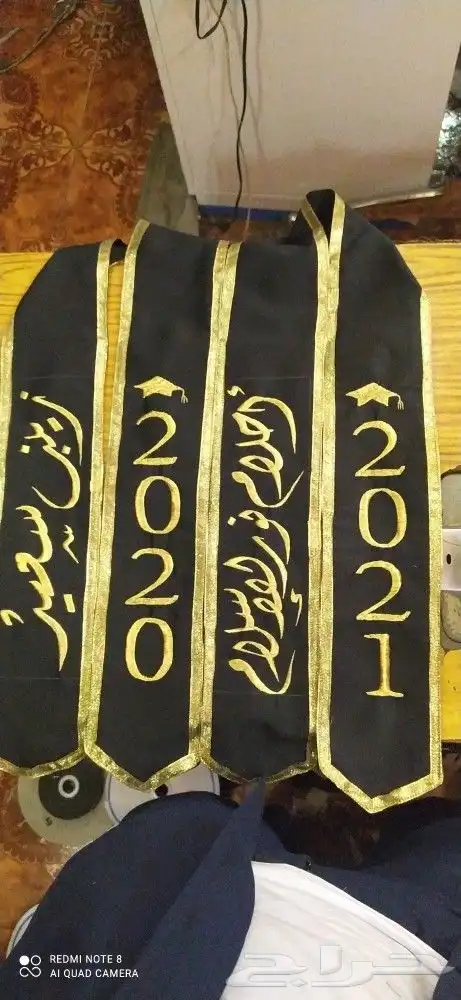 زينب سعيد
2020
أحلام نور الإسلام
2021
REDMI NOTE 8
AI QUAD CAMERA
حراج